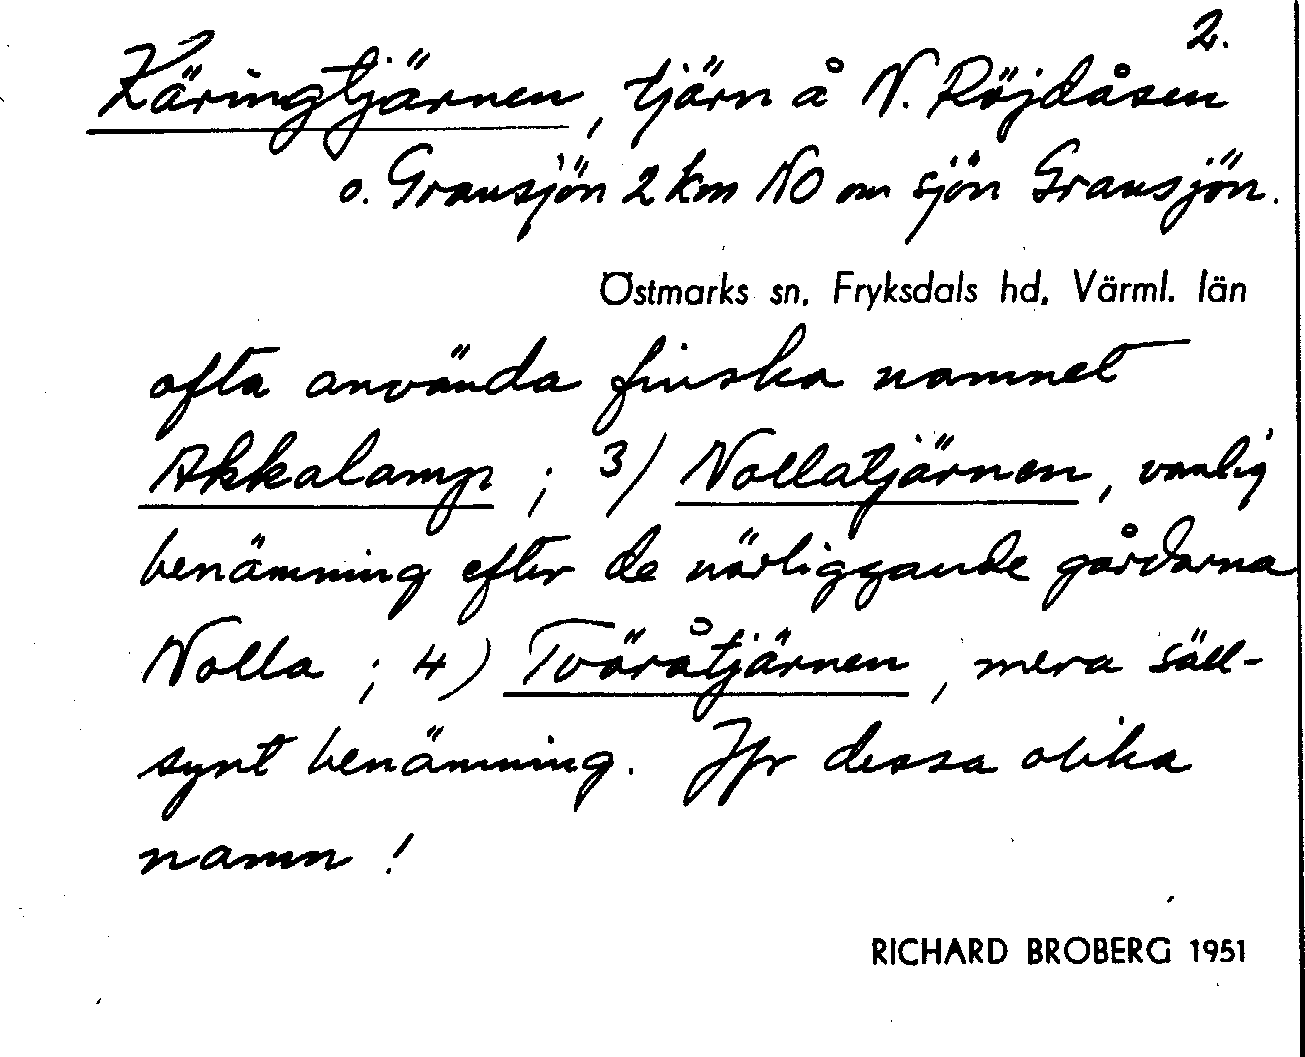 2.
Käringtjärnen, tjärn å N. Röjdåsen
o. Gransjön 2 km NO om sjön Gransjön.
Östmarks sn. Fryksdals hd. Värml. län
ofta använda finska namnet
Akkalamp ; 3) Nollatjärnen, vanlig
benämning efter de närliggande gårdarna
Nolla ; 4) Tväråtjärnen, mera säll-
synt benämning. Jfr dessa olika
namn !
RICHARD BROBERG 1951